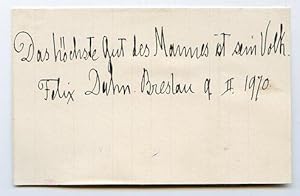 Das höchste Gut des Mannes ist sein Volk.
Felix Dahn. Breslau 9 II. 1910.